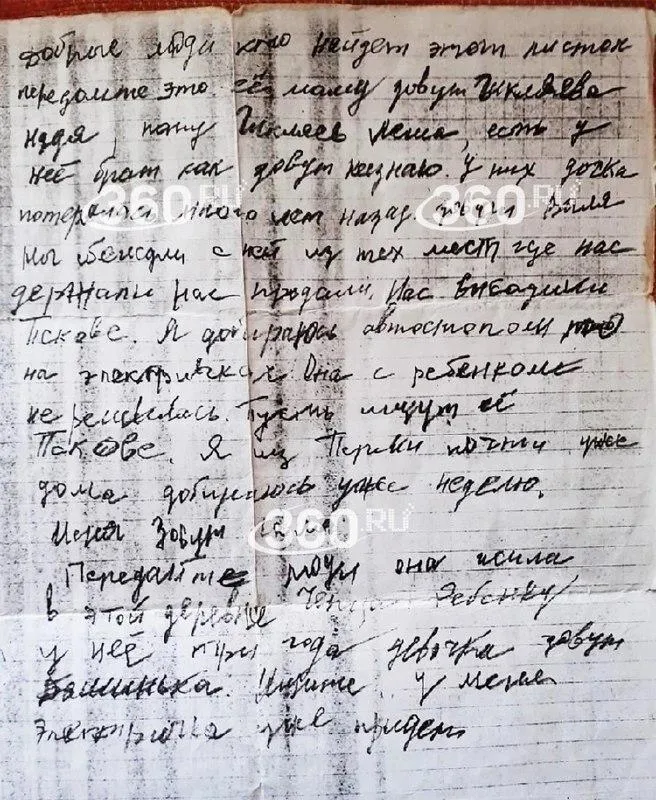 Добрые люди кто найдет этот листок
передайте это её маму зовут Чикляева
Надя, папу Чикляев Леша, есть у
неё брат как зовут незнаю. У них дочка
потерялась много лет назад зовут Валя
Мы збежали с ней из тех мест где нас
держали нас продали. Нас
Пскове. Я добираюсь автостопом
на электричках Она с ребенком
не решилась. Пусть ищут её
Пскове. Я из Перми почти уже
дома добираюсь уже неделю.
Меня Зовут
Передайте люди она жила
в этой деревне ребенку
у неё три года девочка зовут
Ищите, у меня
электричка уже придет
360.RU
360.RU
360.RU